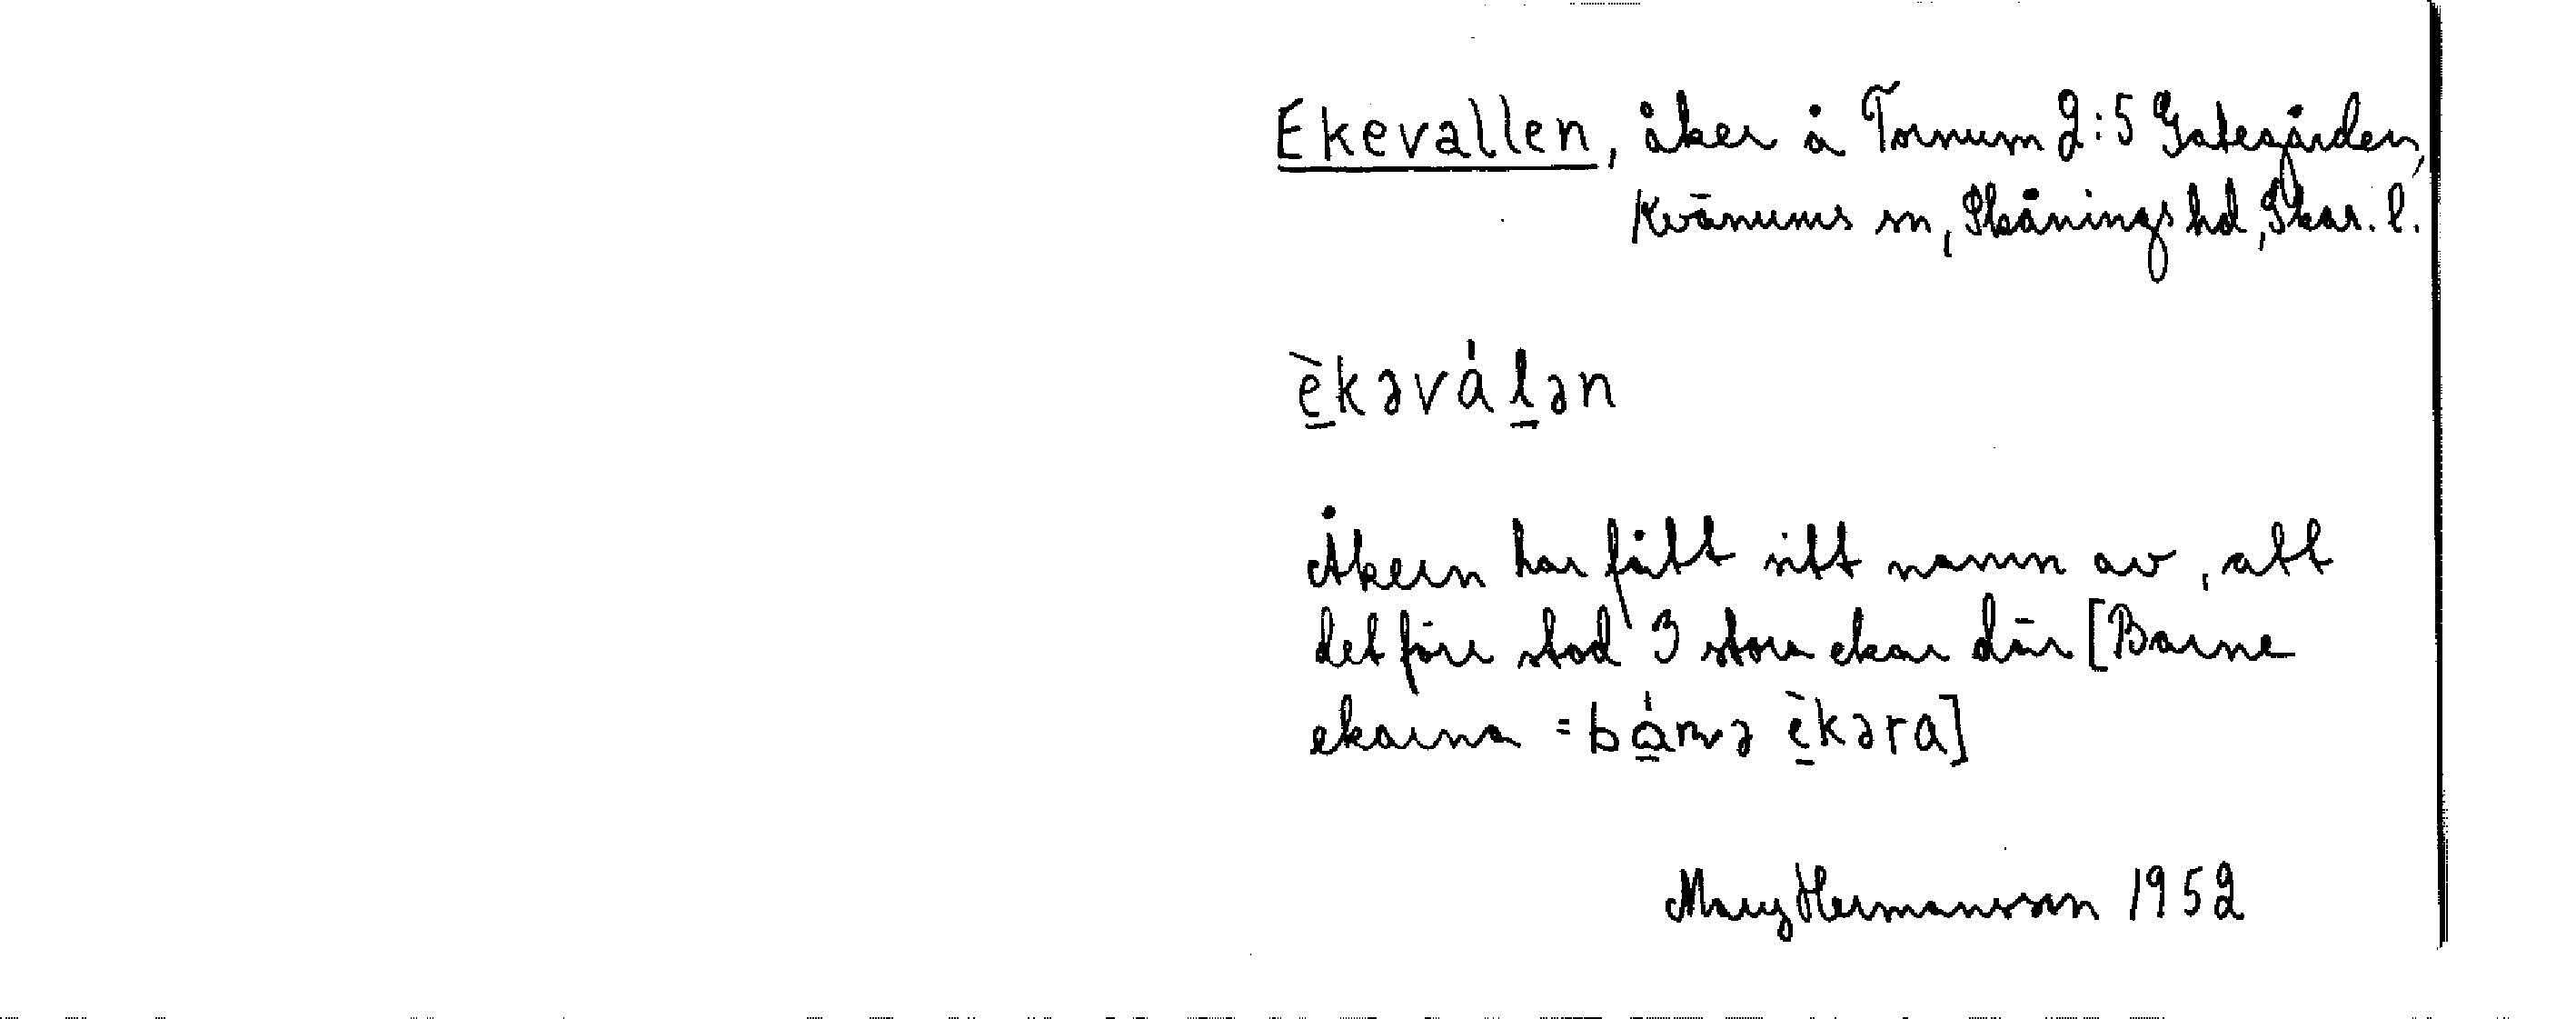 Ekevallen, åker å Tornum 2:5 Gatesgården,
Kvänums sn, Skånings hd, Skar. l.
èkəválən
Åkern har fått sitt namn av, att
det före stod 3 stora ekar där [Barne
ekarna = bánə èkəra]
Mary Hermansson 1952